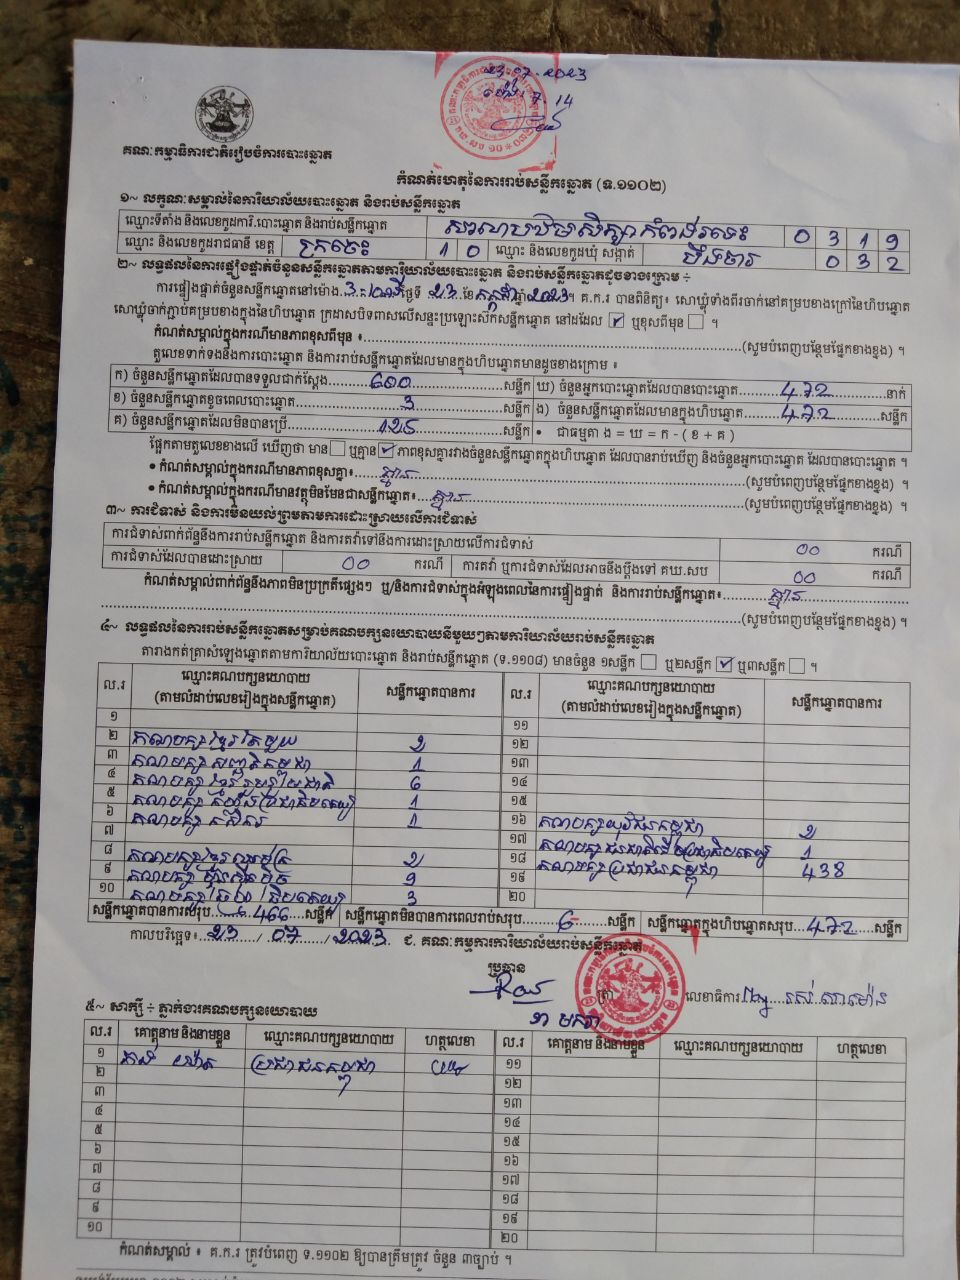 23.07.2023
ម៉ោង 7.14
គណៈកម្មាធិការជាតិរៀបចំការបោះឆ្នោត
កំណត់ហេតុនៃការរាប់សន្លឹកឆ្នោត (ទ.១១០២)
១~ លក្ខណៈសម្គាល់នៃការិយាល័យបោះឆ្នោត និងរាប់សន្លឹកឆ្នោត
ឈ្មោះទីតាំង និងលេខកូដការិ.បោះឆ្នោត និងរាប់សន្លឹកឆ្នោត សាលាបឋមសិក្សាកំពង់រទេះ 0 3 1 9
ឈ្មោះ និងលេខកូដរាជធានី ខេត្ត ក្រចេះ 1 0 ឈ្មោះ និងលេខកូដឃុំ សង្កាត់ បឹងចារ 0 3 2
២~ លទ្ធផលនៃការផ្ទៀងផ្ទាត់ចំនួនសន្លឹកឆ្នោតតាមការិយាល័យបោះឆ្នោត និងរាប់សន្លឹកឆ្នោតដូចខាងក្រោម ÷
ការផ្ទៀងផ្ទាត់ចំនួនសន្លឹកឆ្នោតនៅម៉ោង ថ្ងៃទី 23 ខែ កក្កដា ឆ្នាំ 2023 ។ គ.ក.រ បានពិនិត្យ៖ សោឃ្លុំទាំងពីរចាក់នៅគម្របខាងក្រៅនៃហិបឆ្នោត
សោឃ្លុំចាក់ភ្ជាប់គម្របខាងក្នុងនៃហិបឆ្នោត ក្រដាសបិទពាសលើសន្ទះប្រឡោះស៊កសន្លឹកឆ្នោត នៅដដែល ☑ ឬខុសពីមុន ☐ ។
កំណត់សម្គាល់ក្នុងករណីមានភាពខុសពីមុន ៖ (សូមបំពេញបន្ថែមផ្នែកខាងខ្នង) ។
តួលេខទាក់ទងនឹងការបោះឆ្នោត និងការរាប់សន្លឹកឆ្នោតដែលមានក្នុងហិបឆ្នោតមានដូចខាងក្រោម ៖
ក) ចំនួនសន្លឹកឆ្នោតដែលបានទទួលជាក់ស្តែង 600 សន្លឹក ឃ) ចំនួនអ្នកបោះឆ្នោតដែលបានបោះឆ្នោត 472 នាក់
ខ) ចំនួនសន្លឹកឆ្នោតខូចពេលបោះឆ្នោត 3 សន្លឹក ង) ចំនួនសន្លឹកឆ្នោតដែលមានក្នុងហិបឆ្នោត 472 សន្លឹក
គ) ចំនួនសន្លឹកឆ្នោតដែលមិនបានប្រើ 125 សន្លឹក • ជាធម្មតា ង = ឃ = ក - ( ខ + គ )
ផ្អែកតាមតួលេខខាងលើ ឃើញថា មាន ☐ ឬគ្មាន ☑ ភាពខុសគ្នារវាងចំនួនសន្លឹកឆ្នោតក្នុងហិបឆ្នោត ដែលបានរាប់ឃើញ និងចំនួនអ្នកបោះឆ្នោត ដែលបានបោះឆ្នោត ។
• កំណត់សម្គាល់ក្នុងករណីមានភាពខុសគ្នា៖ គ្មាន (សូមបំពេញបន្ថែមផ្នែកខាងខ្នង) ។
• កំណត់សម្គាល់ក្នុងករណីមានវត្ថុមិនមែនជាសន្លឹកឆ្នោត៖ គ្មាន (សូមបំពេញបន្ថែមផ្នែកខាងខ្នង) ។
៣~ ការជំទាស់ និងការមិនយល់ព្រមតាមការដោះស្រាយលើការជំទាស់
ការជំទាស់ពាក់ព័ន្ធនឹងការរាប់សន្លឹកឆ្នោត និងការតវ៉ាទៅនឹងការដោះស្រាយលើការជំទាស់ 00 ករណី
ការជំទាស់ដែលបានដោះស្រាយ 00 ករណី ការតវ៉ា ឬការជំទាស់ដែលអាចនឹងប្តឹងទៅ គឃ.សប 00 ករណី
កំណត់សម្គាល់ពាក់ព័ន្ធនឹងភាពមិនប្រក្រតីផ្សេងៗ ឬ/និងការជំទាស់ក្នុងអំឡុងពេលនៃការផ្ទៀងផ្ទាត់ និងការរាប់សន្លឹកឆ្នោត៖ គ្មាន
(សូមបំពេញបន្ថែមផ្នែកខាងខ្នង) ។
៤~ លទ្ធផលនៃការរាប់សន្លឹកឆ្នោតសម្រាប់គណបក្សនយោបាយនីមួយៗតាមការិយាល័យរាប់សន្លឹកឆ្នោត
តារាងកត់ត្រាសំឡេងឆ្នោតតាមការិយាល័យបោះឆ្នោត និងរាប់សន្លឹកឆ្នោត (ទ.១១០៨) មានចំនួន ១សន្លឹក ☐ ឬ២សន្លឹក ☑ ឬ៣សន្លឹក ☐ ។
ល.រ ឈ្មោះគណបក្សនយោបាយ (តាមលំដាប់លេខរៀងក្នុងសន្លឹកឆ្នោត) សន្លឹកឆ្នោតបានការ ល.រ ឈ្មោះគណបក្សនយោបាយ (តាមលំដាប់លេខរៀងក្នុងសន្លឹកឆ្នោត) សន្លឹកឆ្នោតបានការ
១ ១១
២ គណបក្សខ្មែរតែមួយ 2 ១២
៣ គណបក្ស សញ្ជាតិកម្ពុជា 1 ១៣
៤ គណបក្ស ខ្មែររួបរួមជាតិ 6 ១៤
៥ គណបក្ស ប្រជាធិបតេយ្យ 1 ១៥
៦ គណបក្ស កសិករ 1 ១៦ គណបក្សយុវជនកម្ពុជា 2
៧ ១៧ គណបក្ស ប្រជាធិបតេយ្យ 1
៨ គណបក្ស 2 ១៨ គណបក្សប្រជាជនកម្ពុជា 438
៩ គណបក្ស ហ្វ៊ុនស៊ិនប៉ិច 9 ១៩
១០ គណបក្ស 3 ២០
សន្លឹកឆ្នោតបានការសរុប 466 សន្លឹក សន្លឹកឆ្នោតមិនបានការពេលរាប់សរុប 6 សន្លឹក សន្លឹកឆ្នោតក្នុងហិបឆ្នោតសរុប 472 សន្លឹក
កាលបរិច្ឆេទ៖ 23 / 07 / 2023 ជ. គណៈកម្មការការិយាល័យរាប់សន្លឹកឆ្នោត
ប្រធាន
ត្រា លេខាធិការ
៥~ សាក្សី ÷ ភ្នាក់ងារគណបក្សនយោបាយ
ល.រ គោត្តនាម និងនាមខ្លួន ឈ្មោះគណបក្សនយោបាយ ហត្ថលេខា ល.រ គោត្តនាម និងនាមខ្លួន ឈ្មោះគណបក្សនយោបាយ ហត្ថលេខា
១ ប្រជាជនកម្ពុជា ១១
២ ១២
៣ ១៣
៤ ១៤
៥ ១៥
៦ ១៦
៧ ១៧
៨ ១៨
៩ ១៩
១០ ២០
កំណត់សម្គាល់ ៖ គ.ក.រ ត្រូវបំពេញ ទ.១១០២ ឱ្យបានត្រឹមត្រូវ ចំនួន ៣ច្បាប់ ។